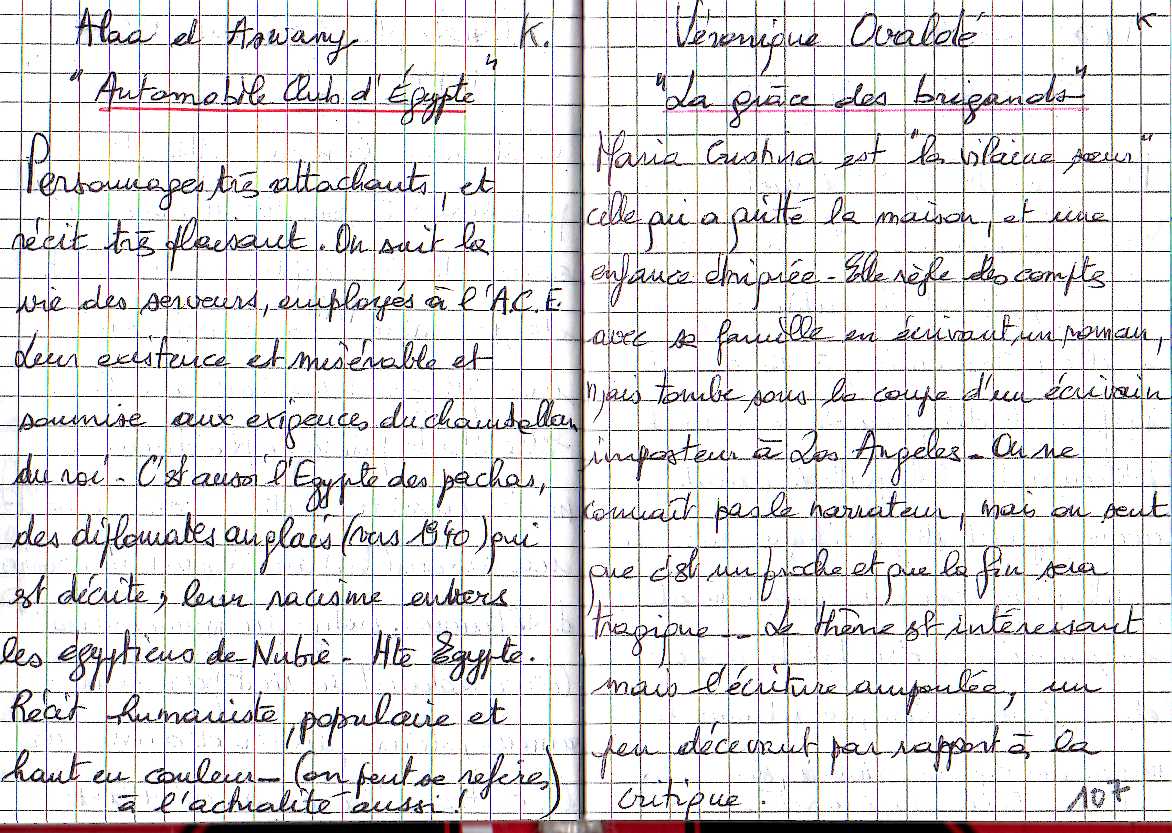 Alaa el Aswany K.
"Automobile Club d'Égypte"
Personnages très attachants, et
récit très plaisant. On suit la
vie des serveurs, employés à l'A.C.E.
Leur existence est misérable et
soumise aux exigences du chambellan
du roi - C'est aussi l'Egypte des pachas,
des diplomates anglais (vers 1940) qui
est décrite, leur racisme envers
les égyptiens de Nubie - Hte Egypte.
Récit humaniste, populaire et
haut en couleur - (on peut se référer
à l'actualité aussi !)
Véronique Ovaldé K
"La grâce des brigands"
Maria Cristina est "la vilaine sœur"
celle qui a quitté la maison, et une
enfance étriquée - Elle règle des comptes
avec sa famille en écrivant un roman,
mais tombe sous la coupe d'un écrivain
imposteur à Los Angeles - On ne
connaît pas le narrateur, mais on sent
que c'est un proche et que la fin sera
tragique -- Le thème est intéressant
mais l'écriture ampoulée, un
peu décevant par rapport à la
critique. 107